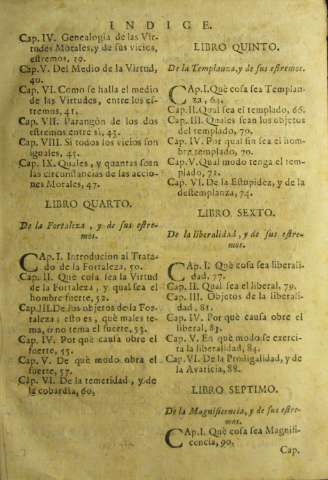 INDICE.
Cap. IV. Genealogia de las Vir-
tudes Morales, y de sus vicios,
estremos, 19.
Cap. V. Del Medio de la Virtud,
40.
Cap. VI. Como se halla el medio
de las Virtudes, entre los es-
tremos, 41.
Cap. VII. Parangòn de los dos
estremos entre sì, 43.
Cap. VIII. Si todos los vicios son
iguales, 45.
Cap. IX. Quales, y quantas sean
las circunstancias de las accio-
nes Morales, 47.
LIBRO QUARTO.
De la Fortaleza, y de sus estre-
mos.
CAp. I. Introducion al Trata-
do de la Fortaleza, 50.
Cap. II. Què cosa sea la Virtud
de la Fortaleza, y qual sea el
hombre fuerte, 52.
Cap. III. De los objetos de la For-
taleza; esto es, què males te-
ma, ò no tema el fuerte, 53.
Cap. IV. Por què causa obre el
fuerte, 55.
Cap. V. De què modo obra el
fuerte, 57.
Cap. VI. De la temeridad, y de
la cobardia, 60.
LIBRO QUINTO.
De la Templanza, y de sus estremos.
CAp. I. Què cosa sea Templan-
za, 64.
Cap. II. Qual sea el templado, 66.
Cap. III. Quales sean los objetos
del templado, 70.
Cap. IV. Por qual fin sea el hom-
bre templado, 70.
Cap. V. Qual modo tenga el tem-
plado, 72.
Cap. VI. De la Estupidez, y de la
destemplanza, 74.
LIBRO SEXTO.
De la liberalidad, y de sus estre-
mos.
CAp. I. Què cosa sea liberali-
dad, 77.
Cap. II. Qual sea el liberal, 79.
Cap. III. Objetos de la liberali-
dad, 81.
Cap. IV. Por què causa obre el
liberal, 83.
Cap. V. En què modo se exerci-
ta la liberalidad, 84.
Cap. VI. De la Prodigalidad, y de
la Avaricia, 88.
LIBRO SEPTIMO.
De la Magnificencia, y de sus estre-
mos.
CAp. I. Què cosa sea Magnifi-
cencia, 90.
Cap.